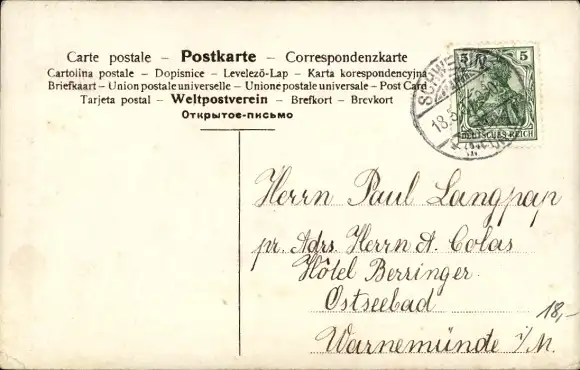 Carte postale – Postkarte – Correspondenzkarte
Cartolina postale – Dopisnice – Levelező-Lap – Karta korespondencyjna
Briefkaart – Union postale universelle – Unione postale universale – Post Card
Tarjeta postal – Weltpostverein – Brefkort – Brevkort
Открытое-письмо
5 5
DEUTSCHES REICH
SCHWERIN
Herrn Paul Langpap
pr. Adrs. Herrn A. Colas
Hôtel Berringer
Ostseebad
18,-
Warnemünde i/M.